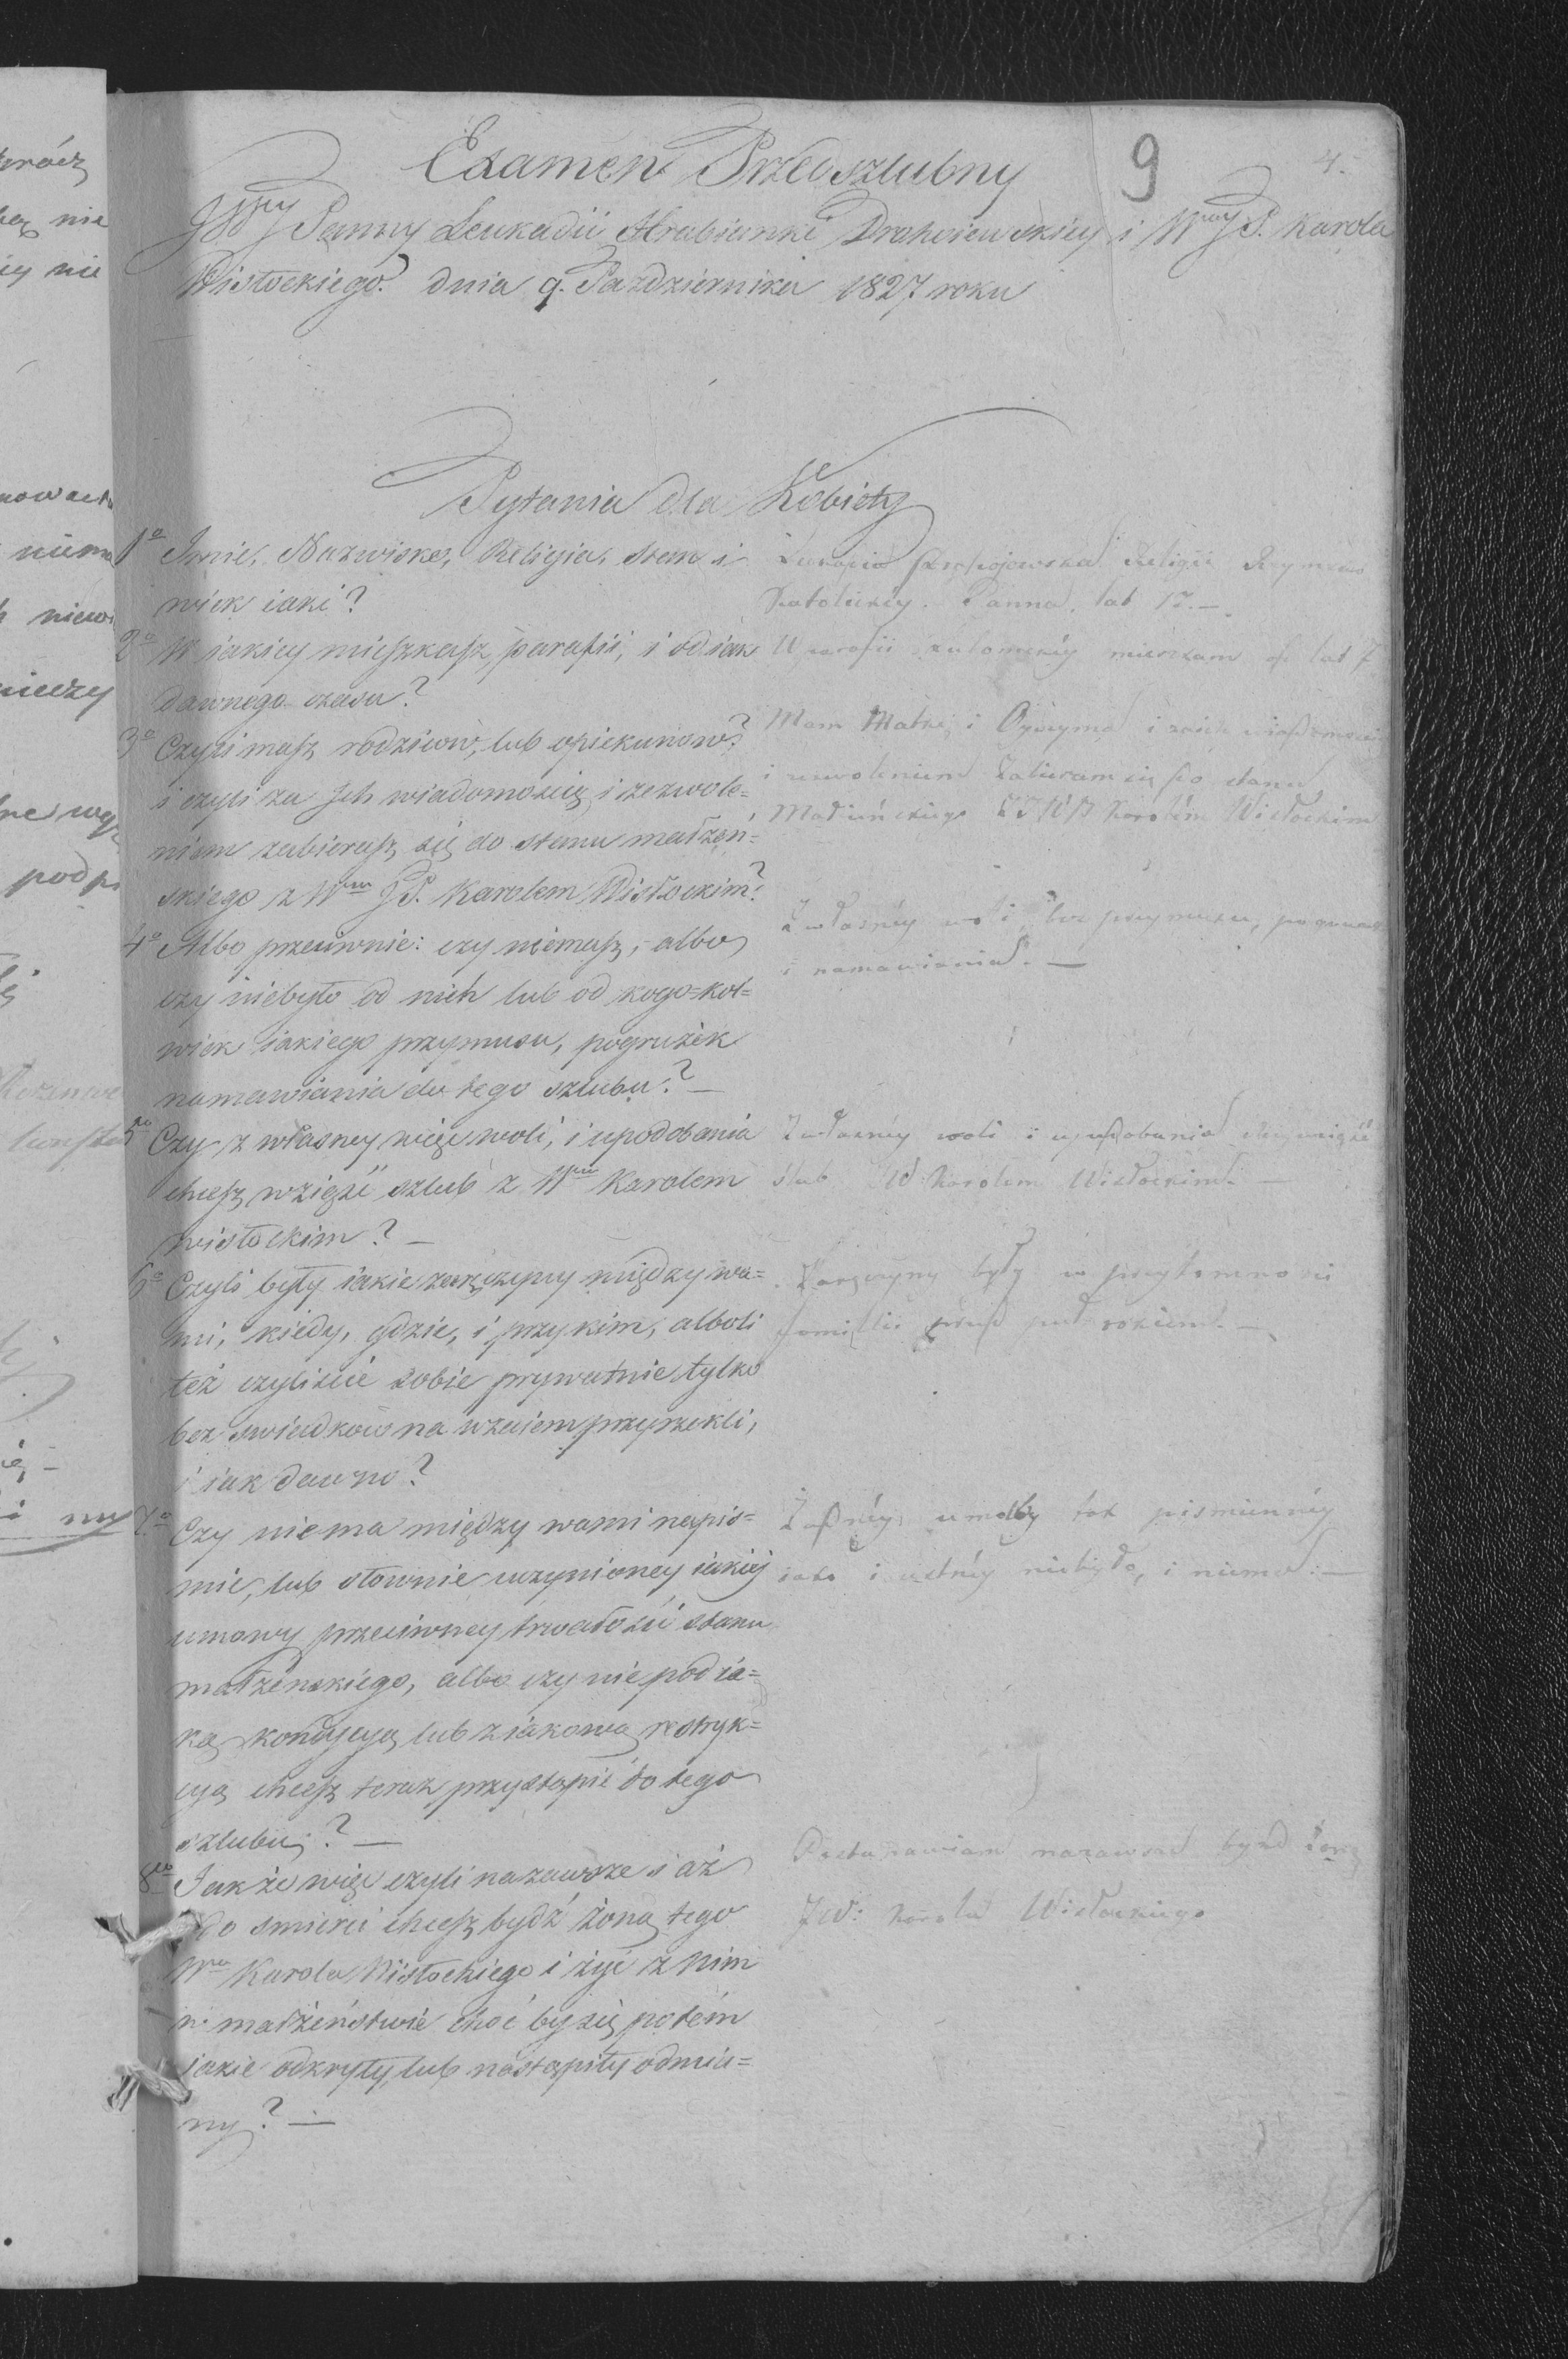 Examen Przedszlubny
9
4.
JWney Panny Leukadii Hrabianki Drohoiewskiey i Wgo JP. Karola
Wisłockiego dnia 9. Października 1827 roku
Pytania dla Kobiety
1o Imie, Nazwisko, Religia, stan i
wiek iaki?
Leukadia Drohojowska Religii Rzymsko
Katolickiey. Panna, lat 17. —
2o W iakiey mieszkasz parafii, i od iak
dawnego czasu?
W parafii mieszkam od lat 7
3o Czyli masz rodziców, lub opiekunów?
i czyli za Ich wiadomością i zezwole=
niem zabierasz się do stanu małżeń=
skiego z Wm JP. Karolem Wisłockim?
Mam Matkę i Oyczyma i za ich wiadomością
i zezwoleniem zabieram się do stanu
Małżeńskiego z Karolem Wisłockim
4o Albo przeciwnie: czy niemasz, albo
czy niebyło od nich lub od kogo=kol=
wiek iakiego przymusu, pogrużek
namawiania do tego szlubu? —
Z własnéy woli, bez przymusu,
i namawiania. —
5to Czy z własney więc woli, i upodobania
chcesz wziąść szlub z Wm Karolem
Wisłockim? —
Z własnéy woli i upodobania chcę wziąść
ślub z W Karolem Wisłockim. —
6o Czyli były iakie zaręczyny między wa=
mi, kiedy, gdzie, i przy kim, alboli
też czyliście sobie prywatnie tylko
bez swiadków na wzaiem przyrzekli,
i iak dawno?
Zaręczyny były w przytomności
familii przed pół rokiem. —
7o Czy niema między wami napis=
mie, lub słownie uczynioney iakiej
umowy przeciwney trwałości stanu
małżeńskiego, albo czy nie pod ia=
ką kondycyą lub z iakową restryk=
cyą chcesz teraz przystąpić do tego
szlubu? —
Żadnéy umowy tak pismiennéy
iako i ustnéy niebyło, i niema. —
8vo Jak że więc czyli na zawsze i aż
do smierci chcesz bydź żoną tego
Wgo Karola Wisłockiego i żyć z nim
w małżeństwie choć by się potém
iakie odkryły, lub nastąpiły odmia=
ny? —
Postanawiam nazawsze bydź żoną
JW: Karola Wisłockiego